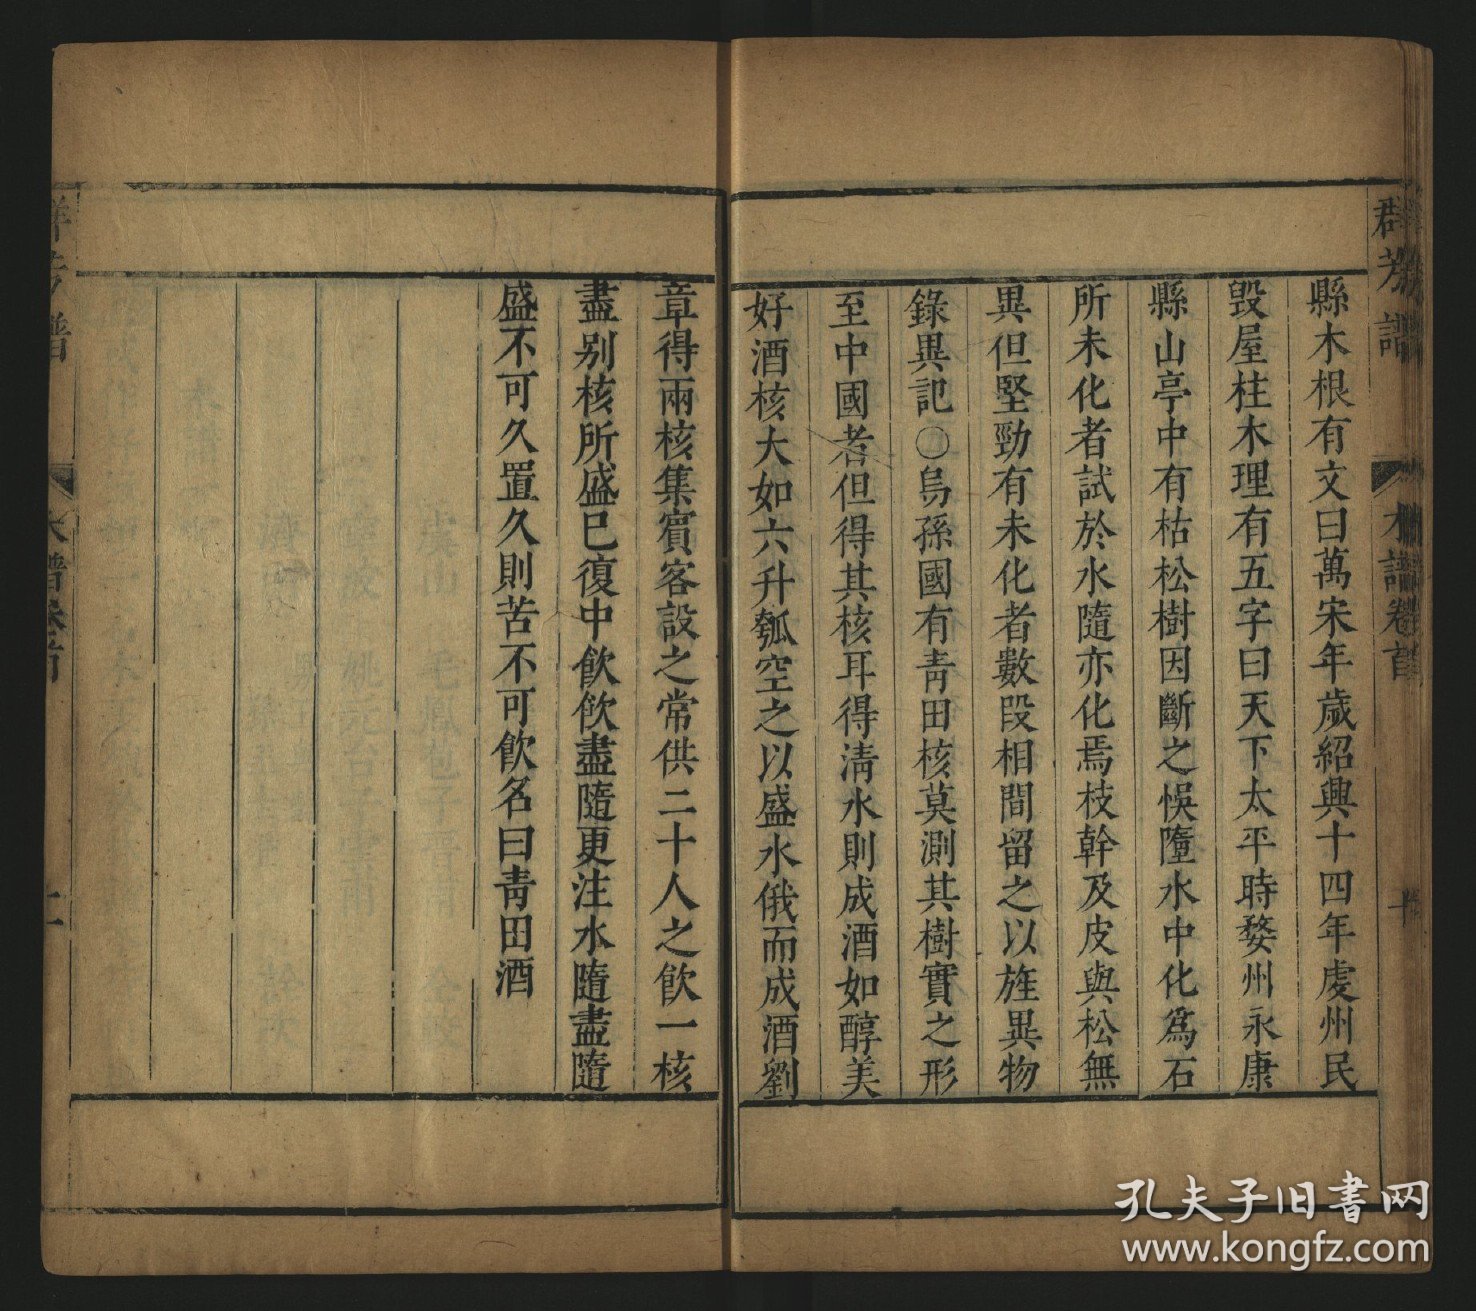 群芳譜 木譜卷首 十
縣木根有文曰萬宋年歲紹興十四年處州民
毀屋柱木理有五字曰天下太平時婺州永康
縣山亭中有枯松樹因斷之悞墮水中化爲石
所未化者試於水隨亦化焉枝幹及皮與松無
異但堅勁有未化者數段相間留之以旌異物
錄異記〇烏孫國有青田核莫測其樹實之形
至中國者但得其核耳得清水則成酒如醇美
好酒核大如六升瓠空之以盛水俄而成酒劉
章得兩核集賓客設之常供二十人之飲一核
盡别核所盛巳復中飲飲盡隨更注水隨盡隨
盛不可久置久則苦不可飲名曰青田酒
群芳譜 木譜卷首
孔夫子旧书网
www.kongfz.com